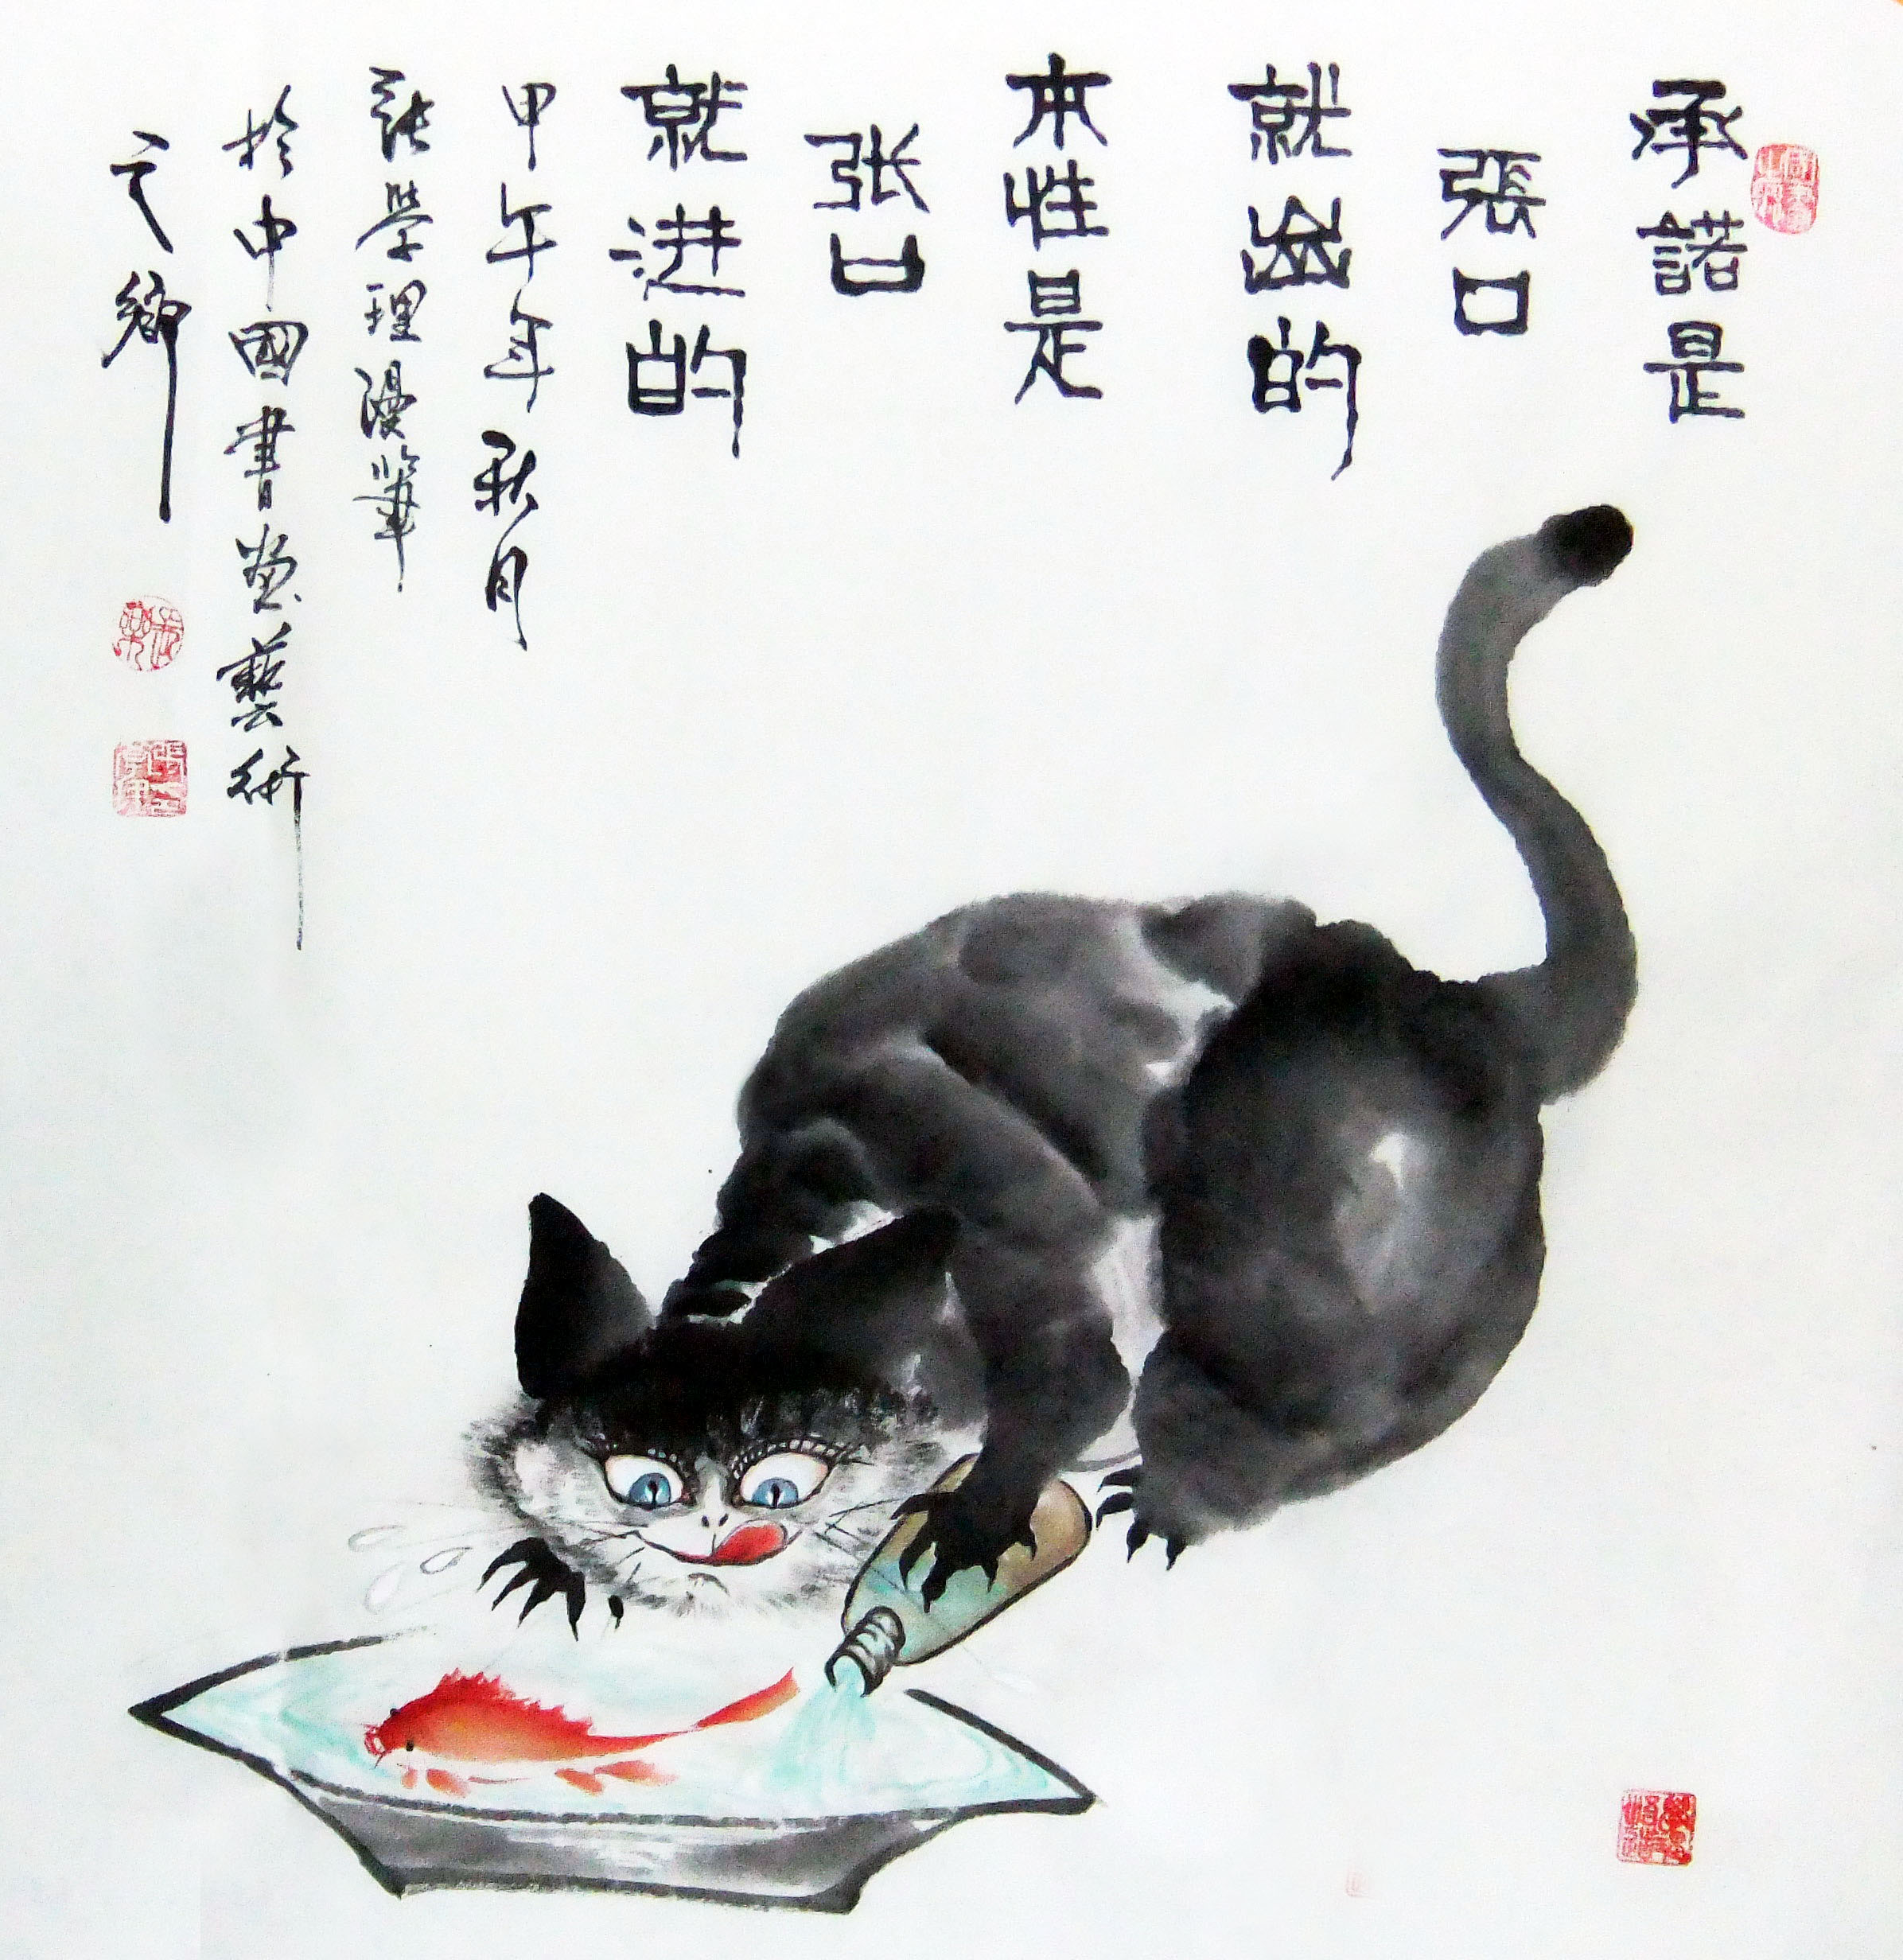 承諾是
張口
就出的
本性是
张口
就进的
甲午年秋月
張學理漫筆
於中國書画藝術
之鄉